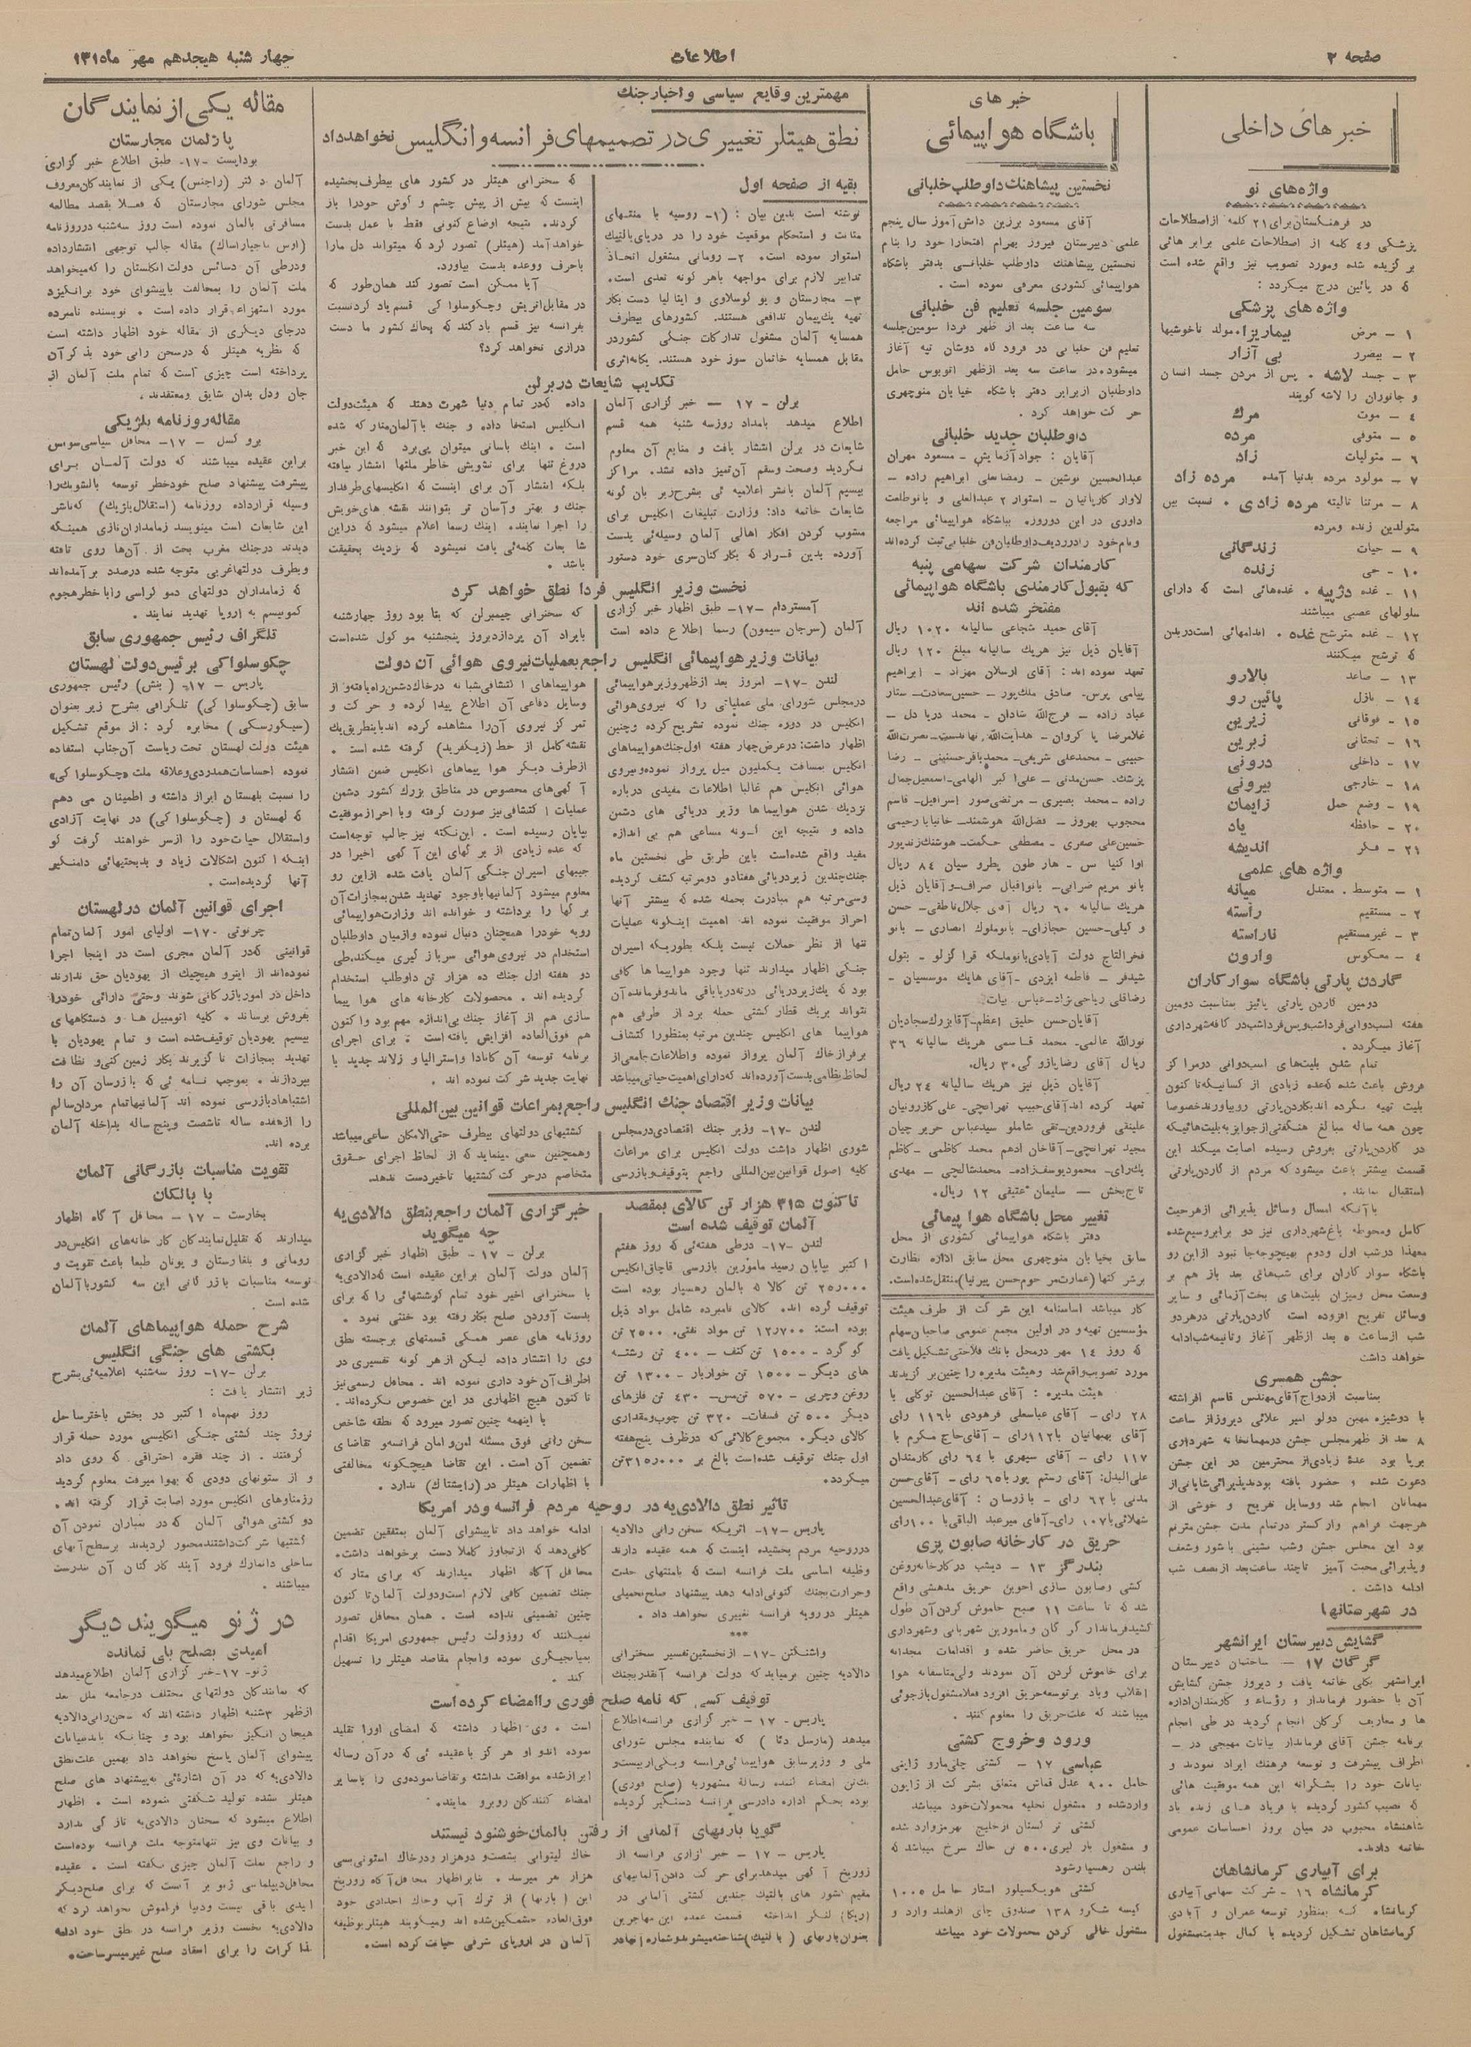 صفحه ۲
اطلاعات
چهار شنبه هیجدهم مهر ماه ۱۳۱
خبر های داخلی
واژه‌های نو
در فرهنگستان برای ۲۱ کلمه از اصطلاحات
پزشکی و ۴ کلمه از اصطلاحات علمی برابر هائی
بر گزیده شده و مورد تصویب نیز واقع شده است
که در پائین درج میگردد :
واژه های پزشکی
۱ – مرض بیماریزا. مولد ناخوشیها
۲ – بیضرر بی آزار
۳ – جسد لاشه . پس از مردن جسد انسان
و جانوران را لاشه گویند
۴ – موت مرك
۵ – متوفی مرده
۶ – متولیات زاد
۷ – مولود مرده بدنیا آمده مرده زاد
۸ – مرتنا تالیته مرده زادی . نسبت بین
متولدین زنده ومرده
۹ – حیات زندگانی
۱۰ – حی زنده
۱۱ – غده دژپیه . غده‌هائی است که دارای
سلولهای عصبی میباشند
۱۲ – غده مترشح غده . اندامهائی است در بدن
که ترشح میکنند
۱۳ – صاعد بالارو
۱۴ – نازل پائین رو
۱۵ – فوقانی زبرین
۱۶ – تحتانی زیرین
۱۷ – داخلی درونی
۱۸ – خارجی بیرونی
۱۹ – وضع حمل زایمان
۲۰ – حافظه یاد
۲۱ – فکر اندیشه
واژه های علمی
۱ – متوسط . معتدل میانه
۲ – مستقیم راسته
۳ – غیر مستقیم ناراسته
۴ – معکوس وارون
گاردن پارتی باشگاه سوار کاران
دومین گاردن پارتی پائیز بمناسبت دومین
هفته اسب‌دوانی فردا شب و پس فردا شب در کافه شهرداری
آغاز میگردد .
تمام شدن بلیت‌های اسب‌دوانی در مراکز
فروش باعث شده که عده زیادی از کسانیکه تا کنون
بلیت تهیه نکرده اند بگاردن‌پارتی روبیاورند خصوصا
چون همه ساله مبالغ هنگفتی از جوایز به بلیت هائیکه
در گاردن‌پارتی بفروش رسیده اصابت میکند این
قسمت بیشتر باعث میشود که مردم از گاردن‌پارتی
استقبال نمایند .
با آنکه امسال وسائل پذیرائی از هر حیث
کامل ومحوطه باغ شهرداری نیز دو برابر وسیع شده
معهذا در شب اول ودوم بهیچوجه جا نبود از این رو
باشگاه سوار کاران برای شب‌هائی بعد باز هم بر
وسعت محل ومیزان بلیت‌های بخت آزمائی و سایر
وسائل تفریح افزوده است گاردن‌پارتی در هر دو
شب از ساعت ۵ بعد از ظهر آغاز و تا نیمه شب ادامه
خواهد داشت
جشن همسری
بمناسبت ازدواج آقای مهندس قاسم افراشته
با دوشیزه مهین دولو امیر علائی دیروز از ساعت
۸ بعد از ظهر مجلس جشن در مهمانخانه شهرداری
برپا بود عدهٔ زیادی از محترمین در این جشن
دعوت شده و حضور یافته بودند پذیرائی شایانی از
مهمانان انجام شد ووسایل تفریح و خوشی از
هر جهت فراهم وارکستر در تمام مدت جشن مترنم
بود این مجلس جشن وشب نشینی با شور وشعف
وپذیرائی محبت آمیز تا چند ساعت بعد از نصف شب
ادامه داشت .
در شهرستانها
گشایش دبیرستان ایرانشهر
گرگان ۱۷ – ساختمان دبیرستان
ایرانشهر بکلی خاتمه یافت و دیروز جشن گشایش
آن با حضور فرماندار و رؤساء و کارمندان اداره
ها و معاریف گرگان انجام گردید در طی انجام
برنامه جشن آقای فرماندار بیانات مهیجی در –
اطراف پیشرفت و توسعه فرهنك ایراد نمودند و
بیانات خود را بشکرانه این همه موفقیت هائی
که نصیب کشور گردیده با فریاد های زنده باد
شاهنشاه محبوب در میان بروز احساسات عمومی
خاتمه دادند.
برای آبیاری کرمانشاهان
کرمانشاه ۱۶ – شرکت سهامی آبیاری
کرمانشاه که بمنظور توسعه عمران و آبادی
کرمانشاهان تشکیل گردیده با کمال جدیت مشغول
خبر های
باشگاه هواپیمائی
نخستین پیشاهنك داوطلب خلبانی
آقای مسعود برزین دانش آموز سال پنجم
علمی دبیرستان فیروز بهرام افتخارا خود را بنام
نخستین پیشاهنك داوطلب خلبانی بدفتر باشگاه
هواپیمائی کشوری معرفی نموده است .
سومین جلسه تعلیم فن خلبانی
سه ساعت بعد از ظهر فردا سومین جلسه
تعلیم فن خلبانی در فرود گاه دوشان تپه آغاز
میشود. در ساعت سه بعد از ظهر اتوبوس حامل
داوطلبان از برابر دفتر باشگاه خیابان منوچهری
حرکت خواهد کرد .
داوطلبان جدید خلبانی
آقایان : جواد آزمایش – مسعود مهران
عبدالحسین نوشین – رمضانعلی ابراهیم زاده –
لاوار کاریانیان – استوار ۲ عبدالعلی و بانو طلعت
داوری در این دوروز. بباشگاه هواپیمائی مراجعه
ونام خود را در ردیف داوطلبان فن خلبانی ثبت کرده‌اند
کارمندان شرکت سهامی پنبه
که بقبول کارمندی باشگاه هواپیمائی
مفتخر شده اند
آقای حمید شجاعی سالیانه ۱۰۲۰ ریال
آقایان ذیل نیز هریك سالیانه مبلغ ۱۲۰ ریال
تعهد نموده اند : آقای ارسلان مهرزاد – ابراهیم
پیامی پرس. صادق ملك‌پور – حسین سعادت – ستار
عباد زاده – فرج‌الله شادان – محمد دریا دل –
حبیبی – محمد علی شریفی – محمد باقر حسنینی – رضا
پزشك. حسن مدنی – علی اکبر الهامی – اسمعیل جمال
زاده – محمد بصیری – مرتضی صور اسرافیل – قاسم
محجوب بهروز – فضل‌الله هوشمند – خانبابا رحیمی
حسین‌علی صفری – مصطفی حکمت – هوشنك زندپور
بانو مریم ضرابی – بانو اقبال صراف – و آقایان ذیل
هریك سالیانه ۶۰ ریال آقای جلال ناطقی – حسن
وکیلی – حسین حجازی‌ای – بانو ملوك انصاری – بانو
فخرالتاج دولت آبادی بانو ملکه قراگزلو – بتول
شیدفر – فاطمه ایزدی – آقای هایك موسسیان –
رضاقلی ریاحی‌نژاد – عباس بیات
آقایان حسن خلیق اعظم – آقا بزرك سجادیان
نورالله عالمی – محمد قاسمی هریك سالیانه ۳۶
ریال آقای رضا بازوکی ۳۰ ریال.
آقایان ذیل نیز هریك سالیانه ۲۴ ریال
تعهد کرده اند آقای حبیب تهرانچی – علی کازرونیان
علینقی فروردین – تقی شاملو سید عباس حریر چیان
مجید تهرانچی – آقاخان ادهم محمد کاظمی – کاظم
یك‌رای – محمود یوسف‌زاده – محمد شالچی – مهدی
تاج‌بخش – سلیمان عقیقی ۱۲ ریال.
تغییر محل باشگاه هوا پیمائی
دفتر باشگاه هواپیمائی کشوری از محل
سابق بخیابان منوچهری محل سابق اداره نظارت
بر شرکتها (عمارت مرحوم حسن پیرنیا) منتقل شده است.
کار میباشد اساسنامه این شرکت از طرف هیئت
مؤسسین تهیه و در اولین مجمع عمومی صاحبان سهام
که روز ۱۴ مهر در محل بانك فلاحتی تشکیل یافت
مورد تصویب واقع شد وهیئت مدیره را چنین بر گزیدند
هیئت مدیره : آقای عبدالحسین توکلی با
۲۸ رای – آقای عباسعلی فرهودی با ۱۱۶ رای
آقای بهبهانیان با ۱۱۲ رای – آقای حاج مکرم با
۱۱۷ رای – آقای سپهری با ۶۴ رای کارمندان
علی‌البدل : آقای رستم پور با ۶۵ رای – آقای حسن
مدنی با ۶۲ رای – بازرسان : آقای عبدالحسین
شهلائی با ۱۰۷ رای – آقای میر عبدالباقی با ۱۰۰ رای
حریق در کارخانه صابون پزی
بندرگز ۱۳ – دیشب در کارخانه روغن
کشی وصابون سازی اخوین حریق مدهشی واقع
شد که تا ساعت ۱۱ صبح خاموش کردن آن طول
کشید فرماندار گرگان ومامورین شهربانی وشهرداری
در محل حریق حاضر شده و اقدامات مجدانه
برای خاموش کردن آن نمودند ولی متاسفانه هوا
انقلاب وباد بر توسعه حریق افزود فعلا مشغول بازجوئی
میباشند که علت حریق را معلوم کنند.
ورود وخروج کشتی
عباسی ۱۷ – کشتی چلی‌مارو ژاپنی
حامل ۹۰۰ عدل قماش متعلق بشرکت از ژاپون
وارد شده و مشغول تخلیه محمولات خود میباشد
کشتی تر لستان از خلیج بهرمز وارد شده
و مشغول بارگیری ۵۰۰ تن خاك سرخ میباشد که
بلندن رهسپار شود
کشتی هویکسیلور استار حامل ۱۰۰۵
کیسه شکر و ۱۳۸ صندوق چای از هلند وارد و
مشغول خالی کردن محمولات خود میباشد
مهمترین وقایع سیاسی و اخبار جنك
نطق هیتلر تغییری در تصمیمهای فرانسه و انگلیس نخواهد داد
بقیه از صفحه اول
نوشته است بدین بیان : (۱- روسیه با منتهای
متانت و استحکام موقعیت خود را در دریای بالتیك
استوار نموده است. ۲- رومانی مشغول اتخاذ
تدابیر لازم برای مواجهه باهر گونه تعدی است.
۳- مجارستان و یوگوسلاوی و ایتالیا دست بکار
تهیه یك پیمان تدافعی هستند. کشورهای بیطرف
همسایه آلمان مشغول تدارکات جنگی کشور در
مقابل همسایه خانمان سوز خود هستند. یگانه اثری
که سخنرانی هیتلر در کشور های بیطرف بخشیده
اینست که بیش از پیش چشم و گوش خود را باز
کردند. نتیجه اوضاع کنونی فقط با عمل بدست
خواهد آمد (هیتلر) تصور کرد که میتواند دل ما را
با حرف ووعده بدست بیاورد.
آیا ممکن است تصور کند همان طور که
در مقابل اتریش وچکوسلواکی قسم یاد کرد نسبت
بفرانسه نیز قسم یاد کند که بخاك کشور ما دست
درازی نخواهد کرد؟
تکذیب شایعات در برلن
برلن – ۱۷ – خبر گزاری آلمان
اطلاع میدهد بامداد روز سه شنبه همه قسم
شایعات در برلن انتشار یافت و منابع آن معلوم
نگردید وصحت وسقم آن تمیز داده نشد. مراکز
بیسیم آلمان با نشر اعلامیه ئی بشرح زیر باین گونه
شایعات خاتمه داد : وزارت تبلیغات انگلیس برای
مشوب کردن افکار اهالی آلمان وسیله‌ئی بدست
آورده بدین قرار که بکارکنان سری خود دستور
داده که در تمام دنیا شهرت دهند که هیئت دولت
انگلیس استعفا داده و جنك با آلمان متارکه شده
است . اینك باسانی میتوان پی‌برد که این خبر
دروغ تنها برای تشویش خاطر ملتها انتشار یافته
بلکه انتشار آن برای اینست که انگلیسهای طرفدار
جنك و بهتر وآسان تر بتوانند نقشه های خویش
را اجرا نمایند. اینك رسما اعلام میشود که در این
شایعات کلمه‌ئی یافت نمیشود که نزدیك بحقیقت
باشد .
نخست وزیر انگلیس فردا نطق خواهد کرد
آمستردام –۱۷– طبق اظهار خبر گزاری
آلمان (سرجان سیمون) رسما اطلاع داده است
که سخنرانی چیمبرلن که بنا بود روز چهارشنبه
بایراد آن پردازد بروز پنجشنبه موکول شده است
بیانات وزیر هواپیمائی انگلیس راجع بعملیات نیروی هوائی آن دولت
لندن –۱۷– امروز بعد از ظهر وزیر هواپیمائی
در مجلس شورای ملی عملیاتی را که نیروی هوائی
انگلیس در دوره جنك نموده تشریح کرده وچنین
اظهار داشت : در عرض چهار هفته اول جنك هواپیماهای
انگلیس بمسافت یکملیون میل پرواز نموده و نیروی
هوائی انگلیس هم غالبا اطلاعات مفیدی درباره
نزدیك شدن هواپیماها وزیر دریائی های دشمن
داده و نتیجه این گونه مساعی هم بی اندازه
مفید واقع شده است باین طریق طی نخستین ماه
جنك چندین زیر دریائی هفتاد و دو مرتبه کشف گردیده
وسی مرتبه هم مبادرت بحمله شده که بیشتر آنها
احراز موفقیت نموده اند اهمیت اینگونه عملیات
تنها از نظر حملات نیست بلکه بطوریکه اسیران
جنگی اظهار میدارند تنها وجود هواپیما ها کافی
بود که یك زیر دریائی در ته دریا باقی ماند و فرمانده آن
نتواند بریك قطار کشتی حمله برد از طرفی هم
هواپیما های انگلیس چندین مرتبه بمنظور اکتشاف
بر فراز خاك آلمان پرواز نموده و اطلاعات جامعی از
لحاظ نظامی بدست آورده‌اند که دارای اهمیت حیاتی میباشد
هواپیماهای اکتشافی شبانه در خاك دشمن راه یافته و از
وسایل دفاعی آن اطلاع پیدا کرده و حرکت و
تمرکز نیروی آن را مشاهده کرده اند باین طریق یك
نقشه کامل از خط (زیگفرید) گرفته شده است .
از طرف دیگر هوا پیماهای انگلیس ضمن انتشار
آگهی‌های مخصوص در مناطق بزرك کشور دشمن
عملیات اکتشافی نیز صورت گرفته و با احراز موفقیت
بپایان رسیده است . این نکته نیز جالب توجه است
که عده زیادی از برگهای این آگهی اخیرا در
جیبهای اسیران جنگی آلمان یافت شده از این رو
معلوم میشود آلمانیها باوجود تهدید شدن بمجازات آن
برگها را برداشته و خوانده اند وزارت هواپیمائی
رویه خود را همچنان دنبال نموده و از میان داوطلبان
استخدام در نیروی هوائی سربازگیری میکند. طی
دو هفته اول جنك ده هزار تن داوطلب استخدام
گردیده اند . محصولات کارخانه های هوا پیما
سازی هم از آغاز جنك بی‌اندازه مهم بود و اکنون
هم فوق‌العاده افزایش یافته است . برای اجرای
برنامه توسعه آن کانادا و استرالیا و زلاند جدید با
نهایت جدید شرکت نموده اند .
بیانات وزیر اقتصاد جنك انگلیس راجع بمراعات قوانین بین‌المللی
لندن –۱۷– وزیر جنك اقتصادی در مجلس
شوری اظهار داشت دولت انگلیس برای مراعات
کلیه اصول قوانین بین‌المللی راجع بتوقیف و بازرسی
کشتیهای دولتهای بیطرف حتی‌الامکان ساعی میباشد
وهمچنین سعی مینماید که از لحاظ اجرای حقوق
متخاصم در حرکت کشتیها تاخیر دست ندهد.
تا کنون ۳۱۵ هزار تن کالای بمقصد
آلمان توقیف شده است
لندن –۱۷– در طی هفته‌ئی که روز هفتم
اکتبر بپایان رسید مامورین بازرسی قاچاق انگلیس
۲۵٫۰۰۰ تن کالا که بالمان رهسپار بوده است
توقیف کرده اند. کالای نامبرده شامل مواد ذیل
بوده است: ۱۲٫۷۰۰ تن مواد نفتی. ۲۵۰۰ تن
گوگرد – ۱۵۰۰ تن کنف – ۴۰۰ تن رشته
های دیگر – ۱۵۰۰ تن خواربار – ۱۳۰۰ تن
روغن وچربی – ۵۷۰ تن مس – ۴۳۰ تن فلزهای
دیگر ۵۰۰ تن فسفات – ۳۲۰ تن چوب ومقداری
کالای دیگر. مجموع کالائی که در ظرف پنج هفته
اول جنك توقیف شده است بالغ بر ۳۱۵٫۰۰۰ تن
میگردد.
خبرگزاری آلمان راجع بنطق دالادیه
چه میگوید
برلن – ۱۷ – طبق اظهار خبر گزاری
آلمان دولت آلمان براین عقیده است که دالادیه
با سخنرانی اخیر خود تمام کوششهائی را که برای
بدست آوردن صلح بکار رفته بود خنثی نمود .
روزنامه های عصر همگی قسمتهای برجسته نطق
وی را انتشار داده لیکن از هر گونه تفسیری در
اطراف آن خود داری نموده اند . محافل رسمی نیز
تا کنون هیچ اظهاری در این خصوص نکرده‌اند.
با اینهمه چنین تصور میرود که نقطه شاخص
سخن رانی فوق مسئله امن و امان فرانسه و تقاضای
تضمین آن است. این تقاضا هیچگونه مخالفتی
با اظهارات هیتلر در (رایشتاك) ندارد .
تاثیر نطق دالادیه در روحیه مردم فرانسه و در امریکا
پاریس –۱۷– اثریکه سخن رانی دالادیه
در روحیه مردم بخشیده اینست که همه عقیده دارند
وظیفه اساسی ملت فرانسه است که با منتهای حدت
وحرارت بجنك کنونی ادامه دهد پیشنهاد صلح تحمیلی
هیتلر در رویه فرانسه تغییری نخواهد داد .
***
واشنگتن –۱۷– از نخستین تفسیر سخنرانی
دالادیه چنین برمیاید که دولت فرانسه آنقدر بجنك
ادامه خواهد داد تا پیشوای آلمان بمتفقین تضمین
کافی دهد که از تجاوز کاملا دست برخواهد داشت.
محافل آگاه اظهار میدارند که برای متارکه
جنك تضمین کافی لازم است ودولت آلمان تا کنون
چنین تضمینی نداده است . همان محافل تصور
نمیکنند که روزولت رئیس جمهوری امریکا اقدام
بمیانجیگری نموده وانجام مقاصد هیتلر را تسهیل
کند .
توقیف کسی که نامه صلح فوری را امضاء کرده است
پاریس – ۱۷ – خبر گزاری فرانسه اطلاع
میدهد (مارسل دئا) که نماینده مجلس شورای
ملی و وزیر سابق هواپیمائی فرانسه و یکی از بیست و
یك تن امضاء کننده رسالهٔ مشهوربه (صلح فوری)
بوده بحکم اداره دادرسی فرانسه دستگیر گردیده
است . وی اظهار داشته که امضای اورا تقلید
نموده اند و او هر گز با عقیده ئی که در آن رساله
ابراز شده موافقت نداشته وتقاضا نموده وی را با سایر
امضاء کنندگان روبرو نمایند.
گویا بارنهای آلمانی از رفتن بالمان خوشنود نیستند
پاریس – ۱۷ – خبر گزاری فرانسه از
زوریخ آگهی میدهد برای حرکت دادن آلمانیهای
مقیم کشور های بالتیك چندین کشتی آلمانی در
(ریگا) لنگر انداخته قسمت عمده این مهاجرین
بعنوان بارنهای (بالتیك) شناخته میشوند و شماره آنها در
خاك لیتوانی بشصت و دو هزار و در خاك استونی بسی
هزار هم میرسد . بنابر اظهار محافل آگاه زوریخ
این (بارنها) از ترك آب وخاك اجدادی خود
فوق‌العاده خشمگین شده اند ومیگویند هیتلر بوظیفه
آلمان در اروپای شرقی خیانت کرده است.
مقاله یکی از نمایندگان
پارلمان مجارستان
بوداپست –۱۷– طبق اطلاع خبر گزاری
آلمان دکتر (راجنس) یکی از نمایندگان معروف
مجلس شورای مجارستان که فعلا بقصد مطالعه
مسافرتی بالمان نموده است روز سه‌شنبه در روزنامه
مقاله جالب توجهی انتشار داده
و در طی آن دسائس دولت انگلستان را که میخواهد
ملت آلمان را بمخالفت با پیشوای خود برانگیزد
مورد استهزاء قرار داده است . نویسنده نامبرده
در جای دیگری از مقاله خود اظهار داشته است
که نظریه هیتلر که در سخن رانی خود بذکر آن
پرداخته است چیزی است که تمام ملت آلمان از
جان ودل بدان شایق ومعتقدند.
مقاله روزنامه بلژیکی
بروکسل – ۱۷– محافل سیاسی سویس
براین عقیده میباشند که دولت آلمان برای
پیشرفت پیشنهاد صلح خود خطر توسعه بالشویك را
وسیله قرار داده روزنامه (استقلال بلژیك) که ناشر
این شایعات است مینویسد زمامداران نازی همینکه
دیدند در جنك مغرب بخت از آن‌ها روی تافته
وبطرف دولتهای غربی متوجه شده در صدد برآمده‌اند
که زمامداران دولتهای دموکراسی را با خطر هجوم
کمونیسم به اروپا تهدید نمایند .
تلگراف رئیس جمهوری سابق
چکوسلواکی برئیس دولت لهستان
پاریس –۱۷– (بنش) رئیس جمهوری
سابق (چکوسلواکی) تلگرافی بشرح زیر بعنوان
(سیکورسکی) مخابره کرد : از موقع تشکیل
هیئت دولت لهستان تحت ریاست آن جناب استفاده
نموده احساسات همدردی وعلاقه ملت «چکوسلواکی»
را نسبت بلهستان ابراز داشته و اطمینان می دهم
که لهستان و (چکوسلواکی) در نهایت آزادی
واستقلال حیات خود را از سر خواهند گرفت گو
اینکه اکنون اشکالات زیاد و بدبختیهائی دامنگیر
آنها گردیده است.
اجرای قوانین آلمان در لهستان
چرنوتی –۱۷– اولیای امور آلمان تمام
قوانینی که در آلمان مجری است در اینجا اجرا
نموده‌اند از اینرو هیچیك از یهودیان حق ندارند
داخل در امور بازرگانی شوند وحتی دارائی خود را
بفروش برساند . کلیه اتومبیل ها و دستگاههای
بیسیم یهودیان توقیف شده است و تمام یهودیان با
تهدید بمجازات ناگزیرند بکار زمین کنی و نظافت
بپردازند. بموجب نامه ئی که بازرسان آن را
اشتباها بازرسی نموده اند آلمانیها تمام مردان سالم
را از هفده ساله تا شصت وپنج ساله بداخله آلمان
برده اند.
تقویت مناسبات بازرگانی آلمان
با بالکان
بخارست – ۱۷ – محافل آگاه اظهار
میدارند که تقلیل نمایندگان کارخانه‌های انگلیس در
رومانی و بلغارستان و یونان طبعا باعث تقویت و
توسعه مناسبات بازرگانی این سه کشور با آلمان
شده است .
شرح حمله هواپیماهای آلمان
بکشتی های جنگی انگلیس
برلن –۱۷– روز سه‌شنبه اعلامیه‌ئی بشرح
زیر انتشار یافت :
روز نهم ماه اکتبر در بخش باختر ساحل
نروژ چند کشتی جنگی انگلیسی مورد حمله قرار
گرفتند . از چند فقره احتراقی که روی داد
و از ستونهای دودی که بهوا میرفت معلوم گردید
رزمناوهای انگلیس مورد اصابت قرار گرفته اند.
دو کشتی هوائی آلمان که در بمباران نمودن آن
کشتیها شرکت داشتند مجبور گردیدند بر سطح آبهای
ساحلی دانمارك فرود آیند کارکنان آن تندرست
میباشند .
در ژنو میگویند دیگر
امیدی بصلح باقی نمانده
ژنو –۱۷– خبر گزاری آلمان اطلاع میدهد
که نمایندگان دولتهای مختلف در جامعه ملل بعد
از ظهر ۳شنبه اظهار داشته‌اند که سخن‌رانی دالادیه
هیجان انگیز نخواهد بود و چنانکه باید بیانات
پیشوای آلمان پاسخ نخواهد داد بهمین علت نطق
دالادیه که در آن اشاره‌ئی به پیشنهاد های صلح
هیتلر نشده تولید شگفتی ننموده است . اظهار
اطلاع میشود که سخنان دالادیه تازگی ندارد
و بیانات وی نیز تنها متوجه ملت فرانسه بوده است
و راجع بملت آلمان چیزی نگفته است . عقیده
محافل دیپلماسی ژنو بر آنست که برای صلح دیگر
امیدی باقی نیست ودنیا فراموش نخواهد کرد که
دالادیه نخست وزیر فرانسه در نطق خود ادامه
مذاکرات را برای انعقاد صلح غیر میسر ساخت.